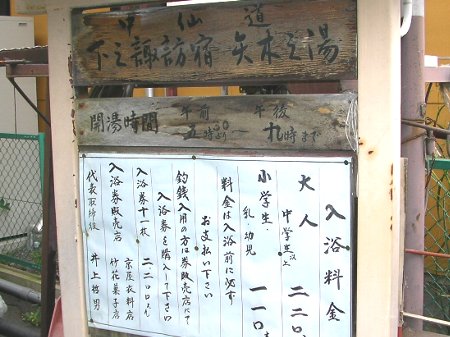 中仙道
下之諏訪宿 矢木之湯
開湯時間
午前
五時00より
午後
九時まで
入浴料金
大人 中学生以上 二二〇
小学生・乳幼児 一一〇
料金は入浴前に必ず
お支払い下さい
釣銭入用の方は券販売店にて
入浴券を購入して下さい
入浴券十一枚 二二〇〇より
入浴券販売店 京屋衣料店
竹花菓子店
代表取締役 井上哲男